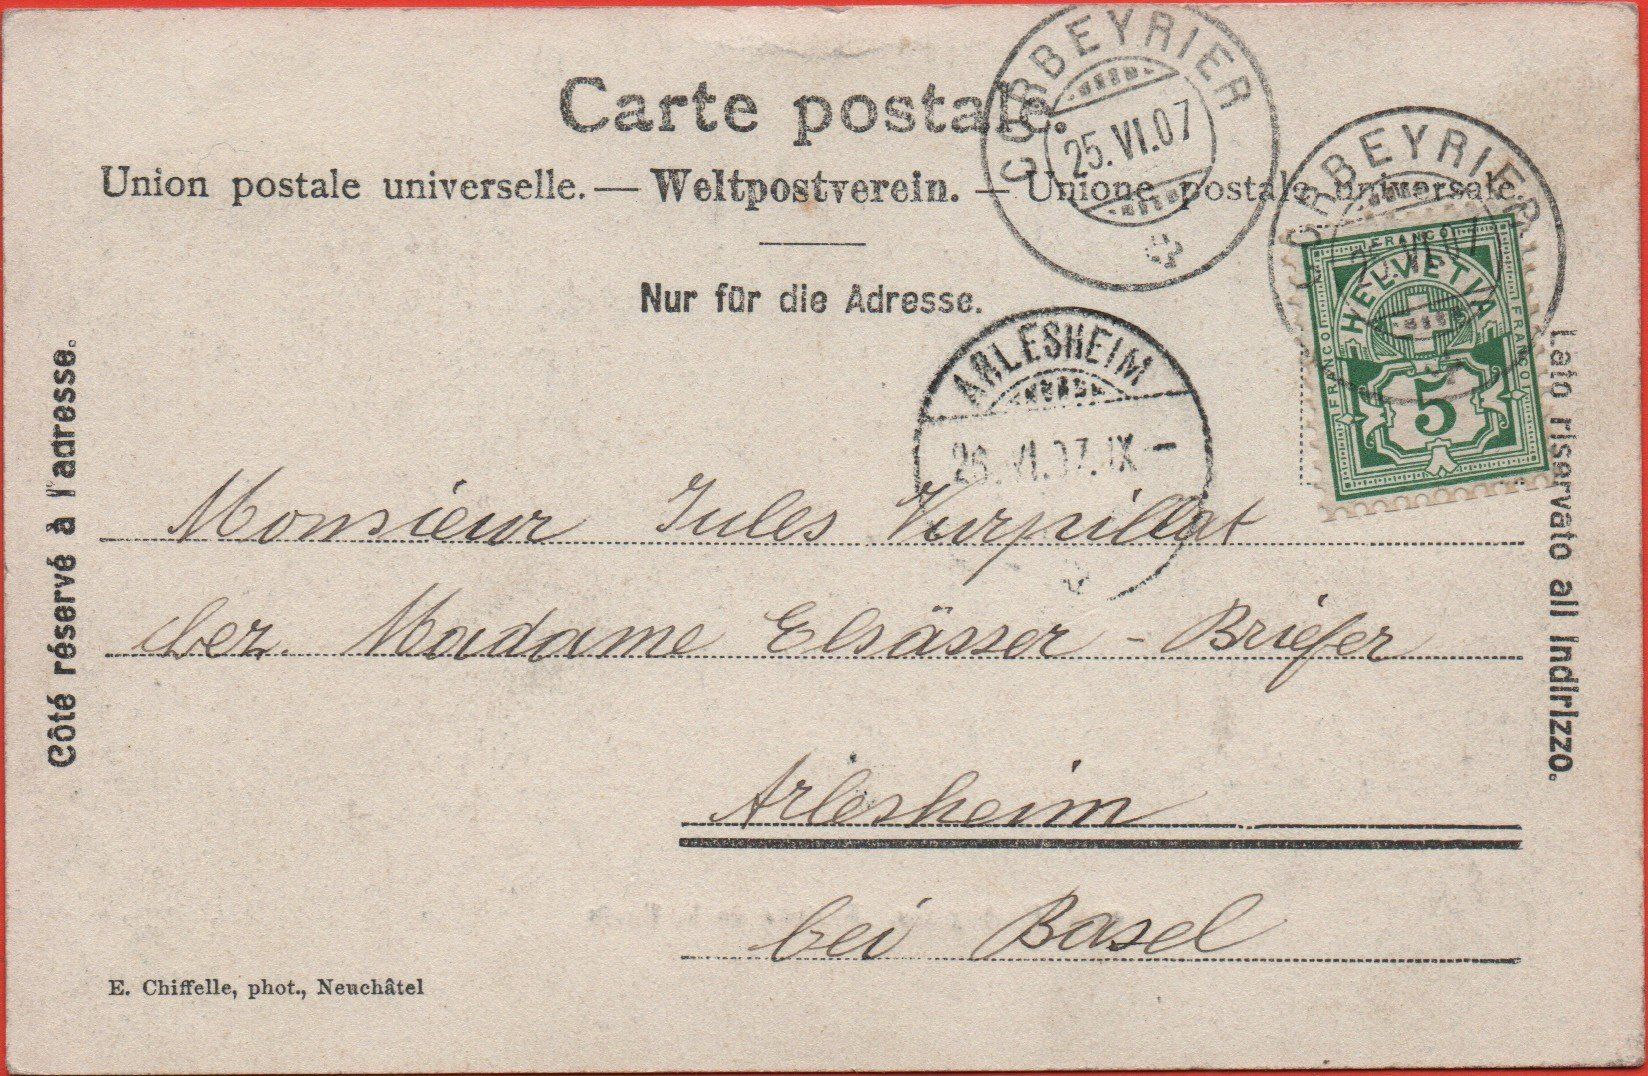 Carte postale.
Union postale universelle. — Weltpostverein. — Unione postale universale.
Nur für die Adresse.
Côté réservé à l'adresse.
Lato riservato all indirizzo.
CORBEYRIER
25.VI.07
CORBEYRIER
25.VI.07
FRANCO
FRANCO
FRANCO
HELVETIA
5
ARLESHEIM
26.VI.07.IX-
Monsieur Jules Vurpillat
Madame Elsässer - Briefer
Arlesheim
bei Basel
E. Chiffelle, phot., Neuchâtel